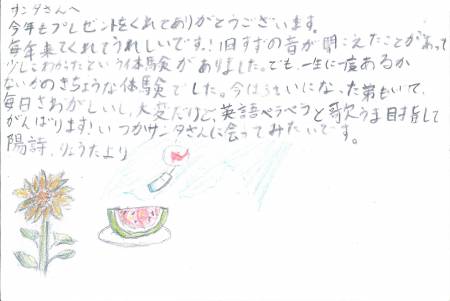 サンタさんへ
今年もプレゼントをくれてありがとうございます。
毎年来てくれてうれしいです!旧すずの音が聞こえたことがあって
少しこわかったという体験がありました。でも、一生に一度あるか
ないかのきちょうな体験でした。今は5さいになった弟もいて、
毎日さわがしいし、大変だけど、英語ぺらぺらと歌うま目指して
がんばります!いつかサンタさんに会ってみたいです。
陽詩、りょうたより